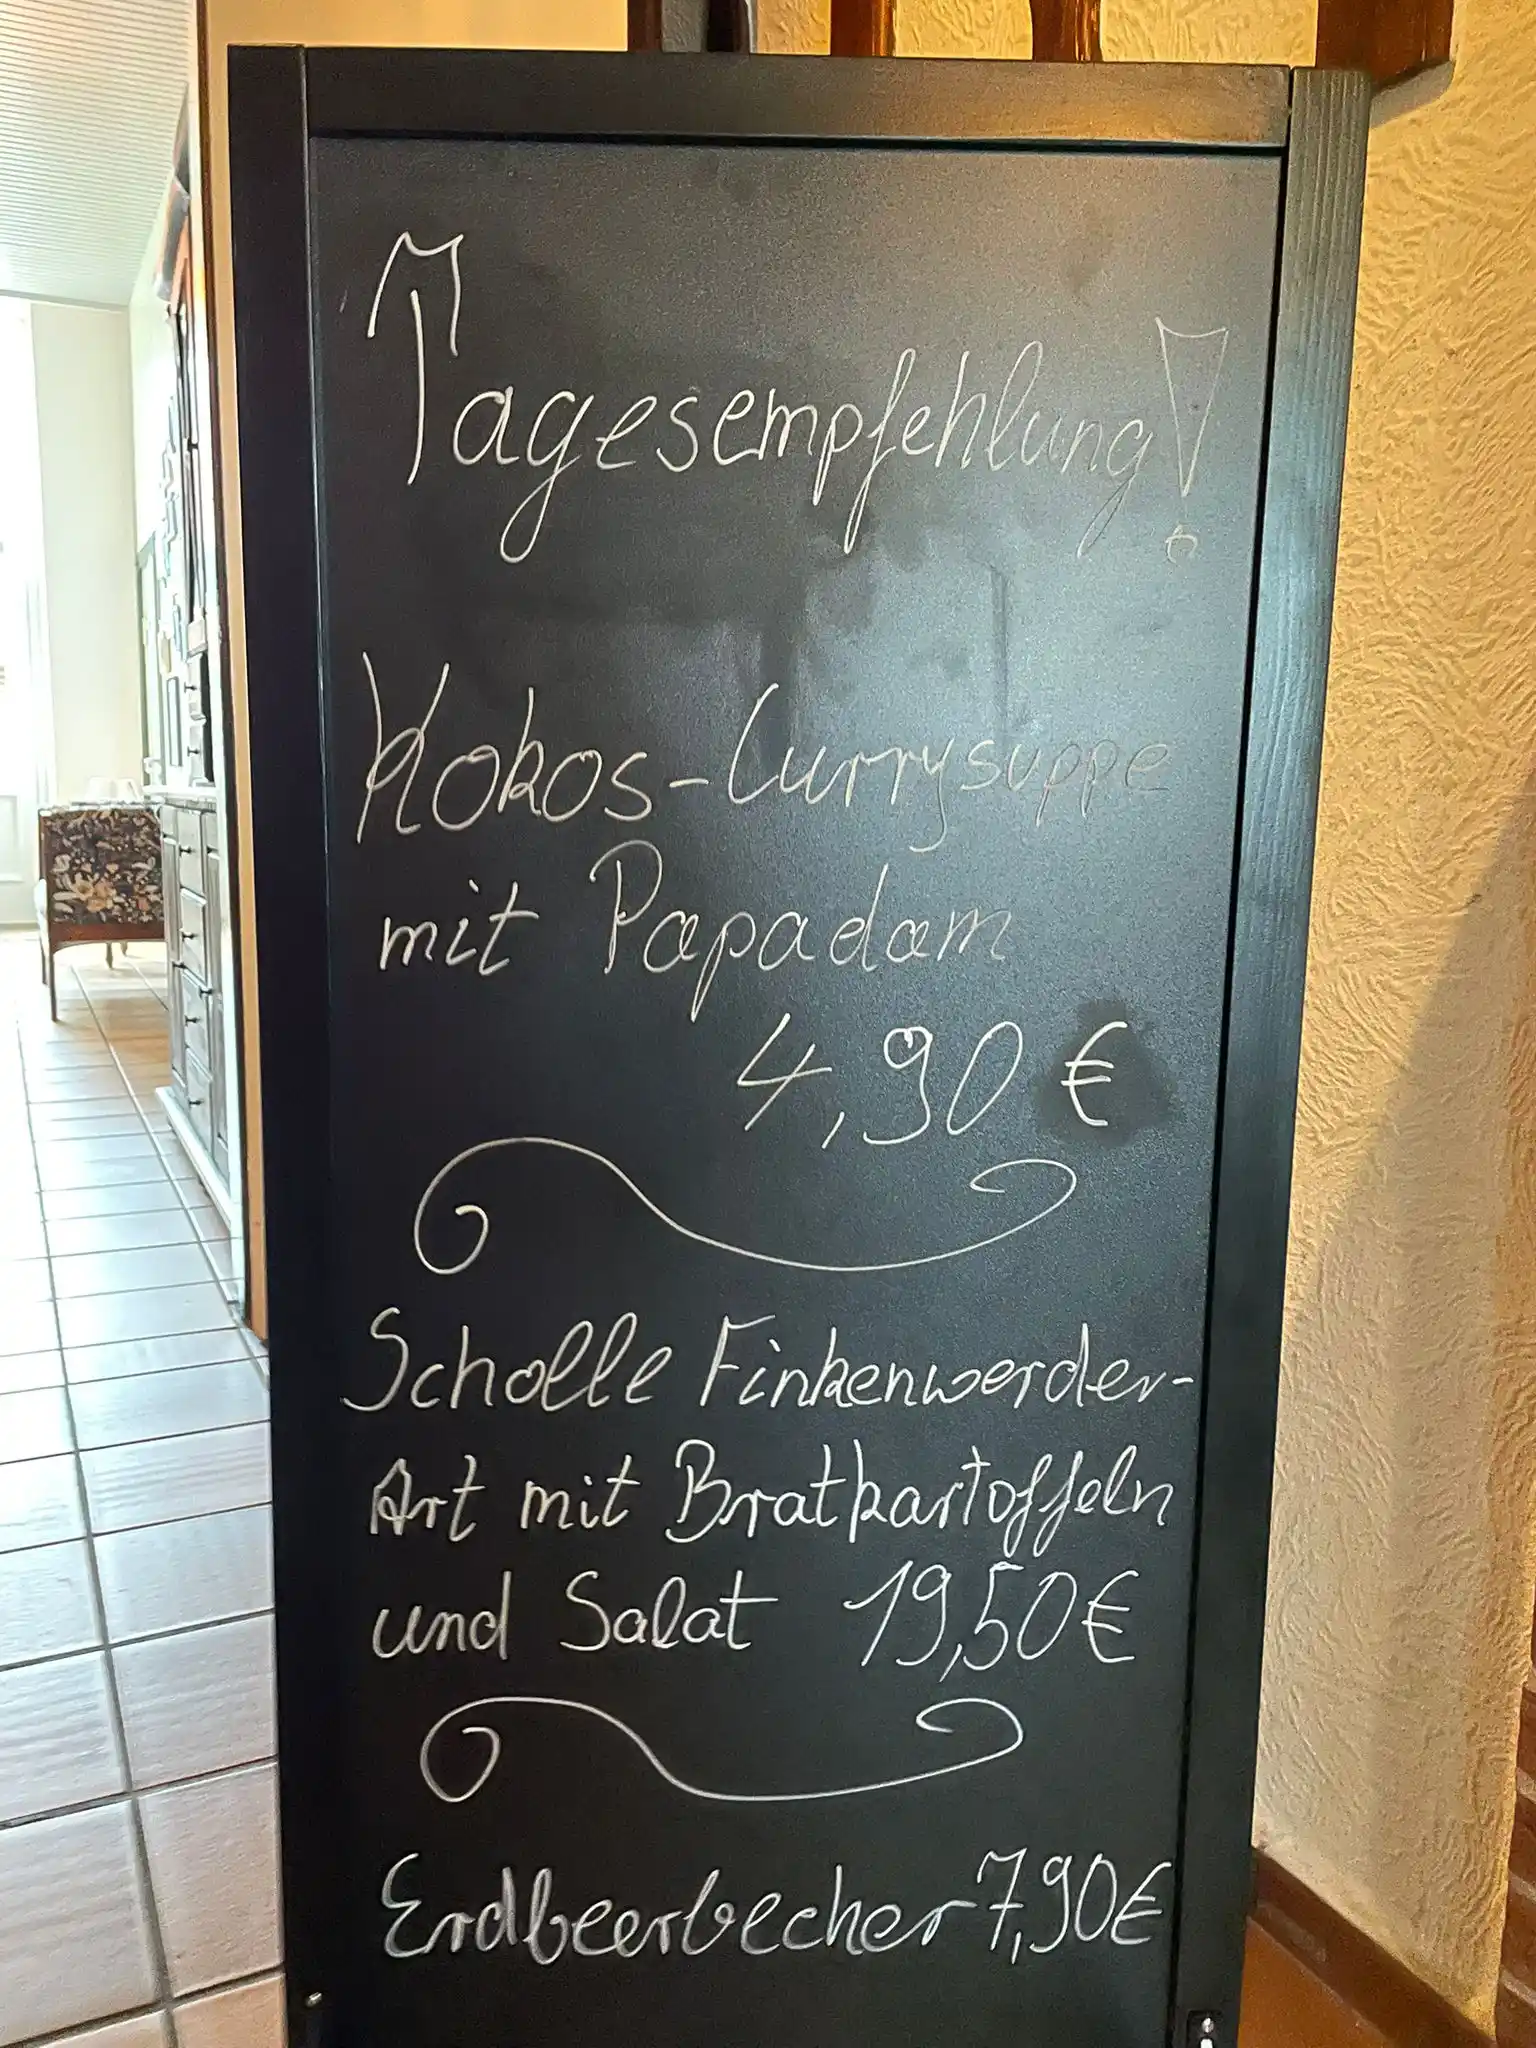 Tagesempfehlung!
Kokos-Currysuppe
mit Papadam
4,90 €
Scholle Finkenwerder-
Art mit Bratkartoffeln
und Salat 19,50€
Erdbeerbecher 7,90€